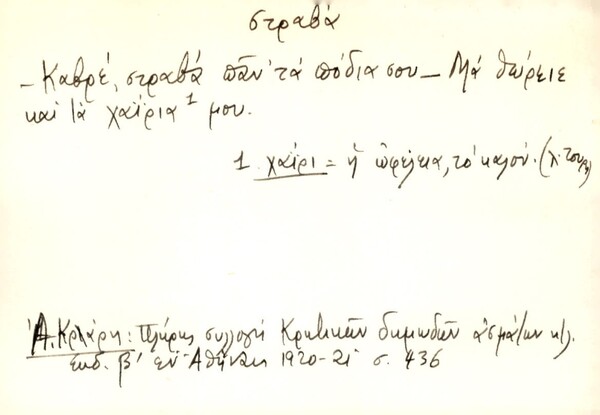 στραβά
– Καβρέ, στραβά πᾶν' τά πόδια σου – Μά θώρειε
καί τά χαΐρια¹ μου.
1 χαΐρι = ἡ ὠφέλεια, τό καλόν. (λ. τουρκ)
Ἀ. Κριάρη: Πλήρης συλλογή Κρητικῶν δημωδῶν ᾀσμάτων κ/λ.
Ἔκδ. β' ἐν Ἀθήναις 1920-21 σ. 436